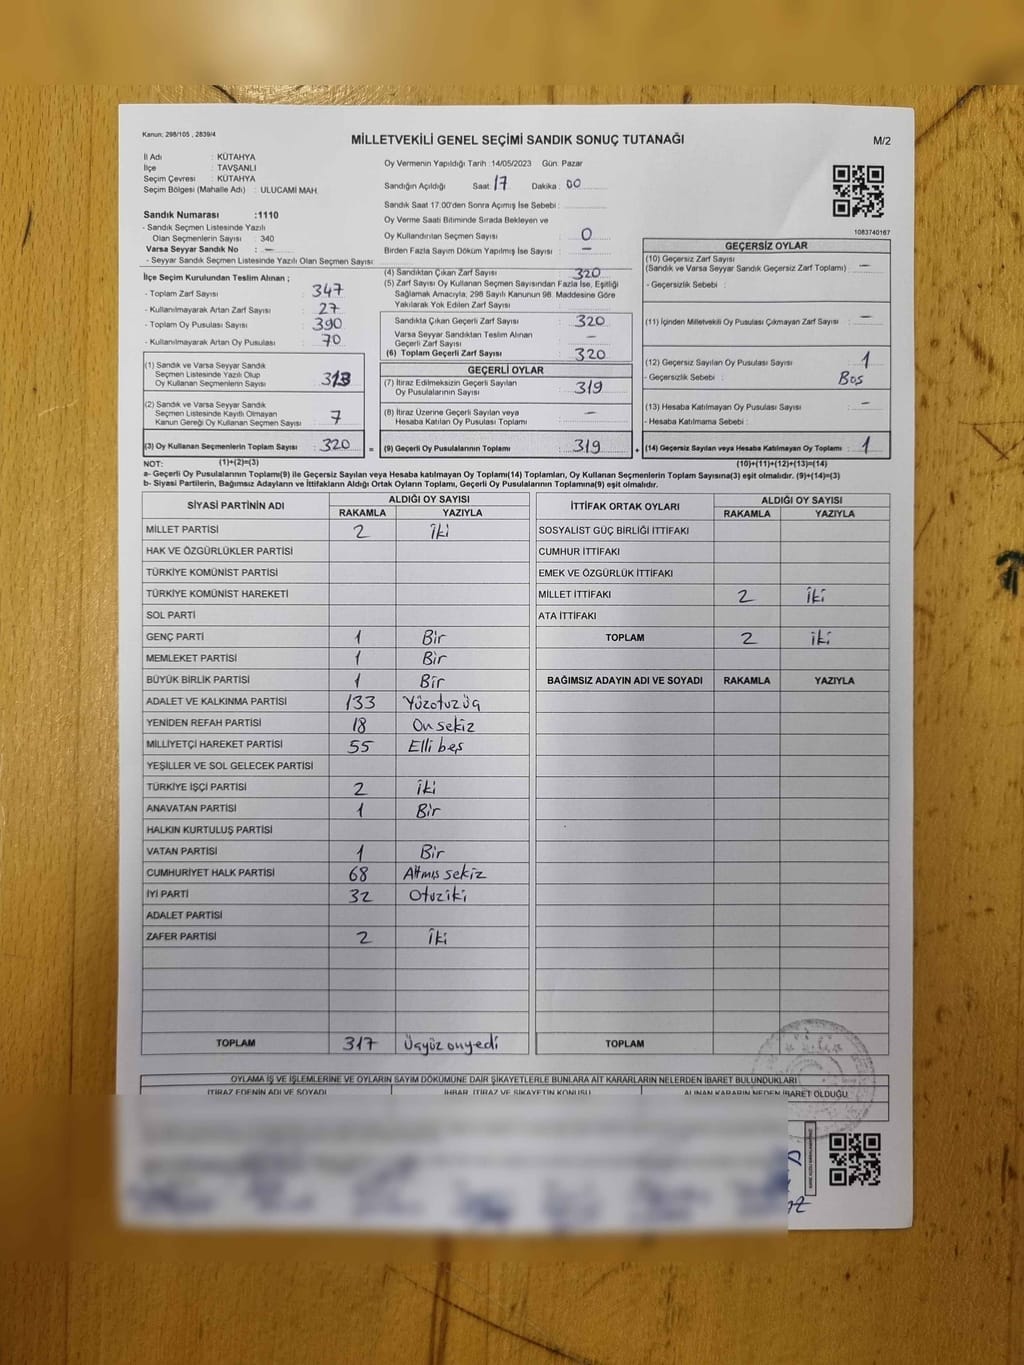 Kanun; 298/105 , 2839/4
MİLLETVEKİLİ GENEL SEÇİMİ SANDIK SONUÇ TUTANAĞI
M/2
İl Adı : KÜTAHYA
İlçe : TAVŞANLI
Seçim Çevresi : KÜTAHYA
Seçim Bölgesi (Mahalle Adı) : ULUCAMİ MAH.
Sandık Numarası :1110
- Sandık Seçmen Listesinde Yazılı
Olan Seçmenlerin Sayısı : 340
Varsa Seyyar Sandık No : —
- Seyyar Sandık Seçmen Listesinde Yazılı Olan Seçmen Sayısı:
Oy Vermenin Yapıldığı Tarih :14/05/2023 Gün: Pazar
Sandığın Açıldığı Saat: 17 Dakika : 00
Sandık Saat 17:00'den Sonra Açımış İse Sebebi :
Oy Verme Saati Bitiminde Sırada Bekleyen ve
Oy Kullandırılan Seçmen Sayısı : 0
Birden Fazla Sayım Döküm Yapılmış İse Sayısı : —
1083740167
İlçe Seçim Kurulundan Teslim Alınan ;
- Toplam Zarf Sayısı : 347
- Kullanılmayarak Artan Zarf Sayısı : 27
- Toplam Oy Pusulası Sayısı : 390
- Kullanılmayarak Artan Oy Pusulası : 70
(1) Sandık ve Varsa Seyyar Sandık
Seçmen Listesinde Yazılı Olup
Oy Kullanan Seçmenlerin Sayısı : 313
(2) Sandık ve Varsa Seyyar Sandık
Seçmen Listesinde Kayıtlı Olmayan
Kanun Gereği Oy Kullanan Seçmen Sayısı : 7
(3) Oy Kullanan Seçmenlerin Toplam Sayısı : 320 =
(4) Sandıktan Çıkan Zarf Sayısı : 320
(5) Zarf Sayısı Oy Kullanan Seçmen Sayısından Fazla İse, Eşitliği
Sağlamak Amacıyla, 298 Sayılı Kanunun 98. Maddesine Göre
Yakılarak Yok Edilen Zarf Sayısı :
Sandıkta Çıkan Geçerli Zarf Sayısı : 320
Varsa Seyyar Sandıktan Teslim Alınan
Geçerli Zarf Sayısı : —
(6) Toplam Geçerli Zarf Sayısı : 320
GEÇERLİ OYLAR
(7) İtiraz Edilmeksizin Geçerli Sayılan
Oy Pusulalarının Sayısı : 319
(8) İtiraz Üzerine Geçerli Sayılan veya
Hesaba Katılan Oy Pusulası Toplamı : —
(9) Geçerli Oy Pusulalarının Toplamı : 319 +
GEÇERSİZ OYLAR
(10) Geçersiz Zarf Sayısı
(Sandık ve Varsa Seyyar Sandık Geçersiz Zarf Toplamı) : —
- Geçersizlik Sebebi :
(11) İçinden Milletvekili Oy Pusulası Çıkmayan Zarf Sayısı : —
(12) Geçersiz Sayılan Oy Pusulası Sayısı : 1
- Geçersizlik Sebebi : Boş
(13) Hesaba Katılmayan Oy Pusulası Sayısı : —
- Hesaba Katılmama Sebebi :
(14) Geçersiz Sayılan veya Hesaba Katılmayan Oy Toplamı : 1
NOT: (1)+(2)=(3) (10)+(11)+(12)+(13)=(14)
a- Geçerli Oy Pusulalarının Toplamı(9) ile Geçersiz Sayılan veya Hesaba katılmayan Oy Toplamı(14) Toplamları, Oy Kullanan Seçmenlerin Toplam Sayısına(3) eşit olmalıdır. (9)+(14)=(3)
b- Siyasi Partilerin, Bağımsız Adayların ve İttifakların Aldığı Ortak Oyların Toplamı, Geçerli Oy Pusulalarının Toplamına(9) eşit olmalıdır.
SİYASİ PARTİNİN ADI ALDIĞI OY SAYISI
RAKAMLA YAZIYLA
MİLLET PARTİSİ 2 İki
HAK VE ÖZGÜRLÜKLER PARTİSİ
TÜRKİYE KOMÜNİST PARTİSİ
TÜRKİYE KOMÜNİST HAREKETİ
SOL PARTİ
GENÇ PARTİ 1 Bir
MEMLEKET PARTİSİ 1 Bir
BÜYÜK BİRLİK PARTİSİ 1 Bir
ADALET VE KALKINMA PARTİSİ 133 Yüzotuzüç
YENİDEN REFAH PARTİSİ 18 On sekiz
MİLLİYETÇİ HAREKET PARTİSİ 55 Elli beş
YEŞİLLER VE SOL GELECEK PARTİSİ
TÜRKİYE İŞÇİ PARTİSİ 2 İki
ANAVATAN PARTİSİ 1 Bir
HALKIN KURTULUŞ PARTİSİ
VATAN PARTİSİ 1 Bir
CUMHURİYET HALK PARTİSİ 68 Altmış sekiz
İYİ PARTİ 32 Otuziki
ADALET PARTİSİ
ZAFER PARTİSİ 2 İki
TOPLAM 317 Üçyüz onyedi
İTTİFAK ORTAK OYLARI ALDIĞI OY SAYISI
RAKAMLA YAZIYLA
SOSYALİST GÜÇ BİRLİĞİ İTTİFAKI
CUMHUR İTTİFAKI
EMEK VE ÖZGÜRLÜK İTTİFAKI
MİLLET İTTİFAKI 2 İki
ATA İTTİFAKI
TOPLAM 2 İki
BAĞIMSIZ ADAYIN ADI VE SOYADI RAKAMLA YAZIYLA
TOPLAM
OYLAMA İŞ VE İŞLEMLERİNE VE OYLARIN SAYIM DÖKÜMÜNE DAİR ŞİKAYETLERLE BUNLARA AİT KARARLARIN NELERDEN İBARET BULUNDUKLARI
İTİRAZ EDENİN ADI VE SOYADI İHBAR, İTİRAZ VE ŞİKAYETİN KONUSU ALINAN KARARIN NEDEN İBARET OLDUĞU